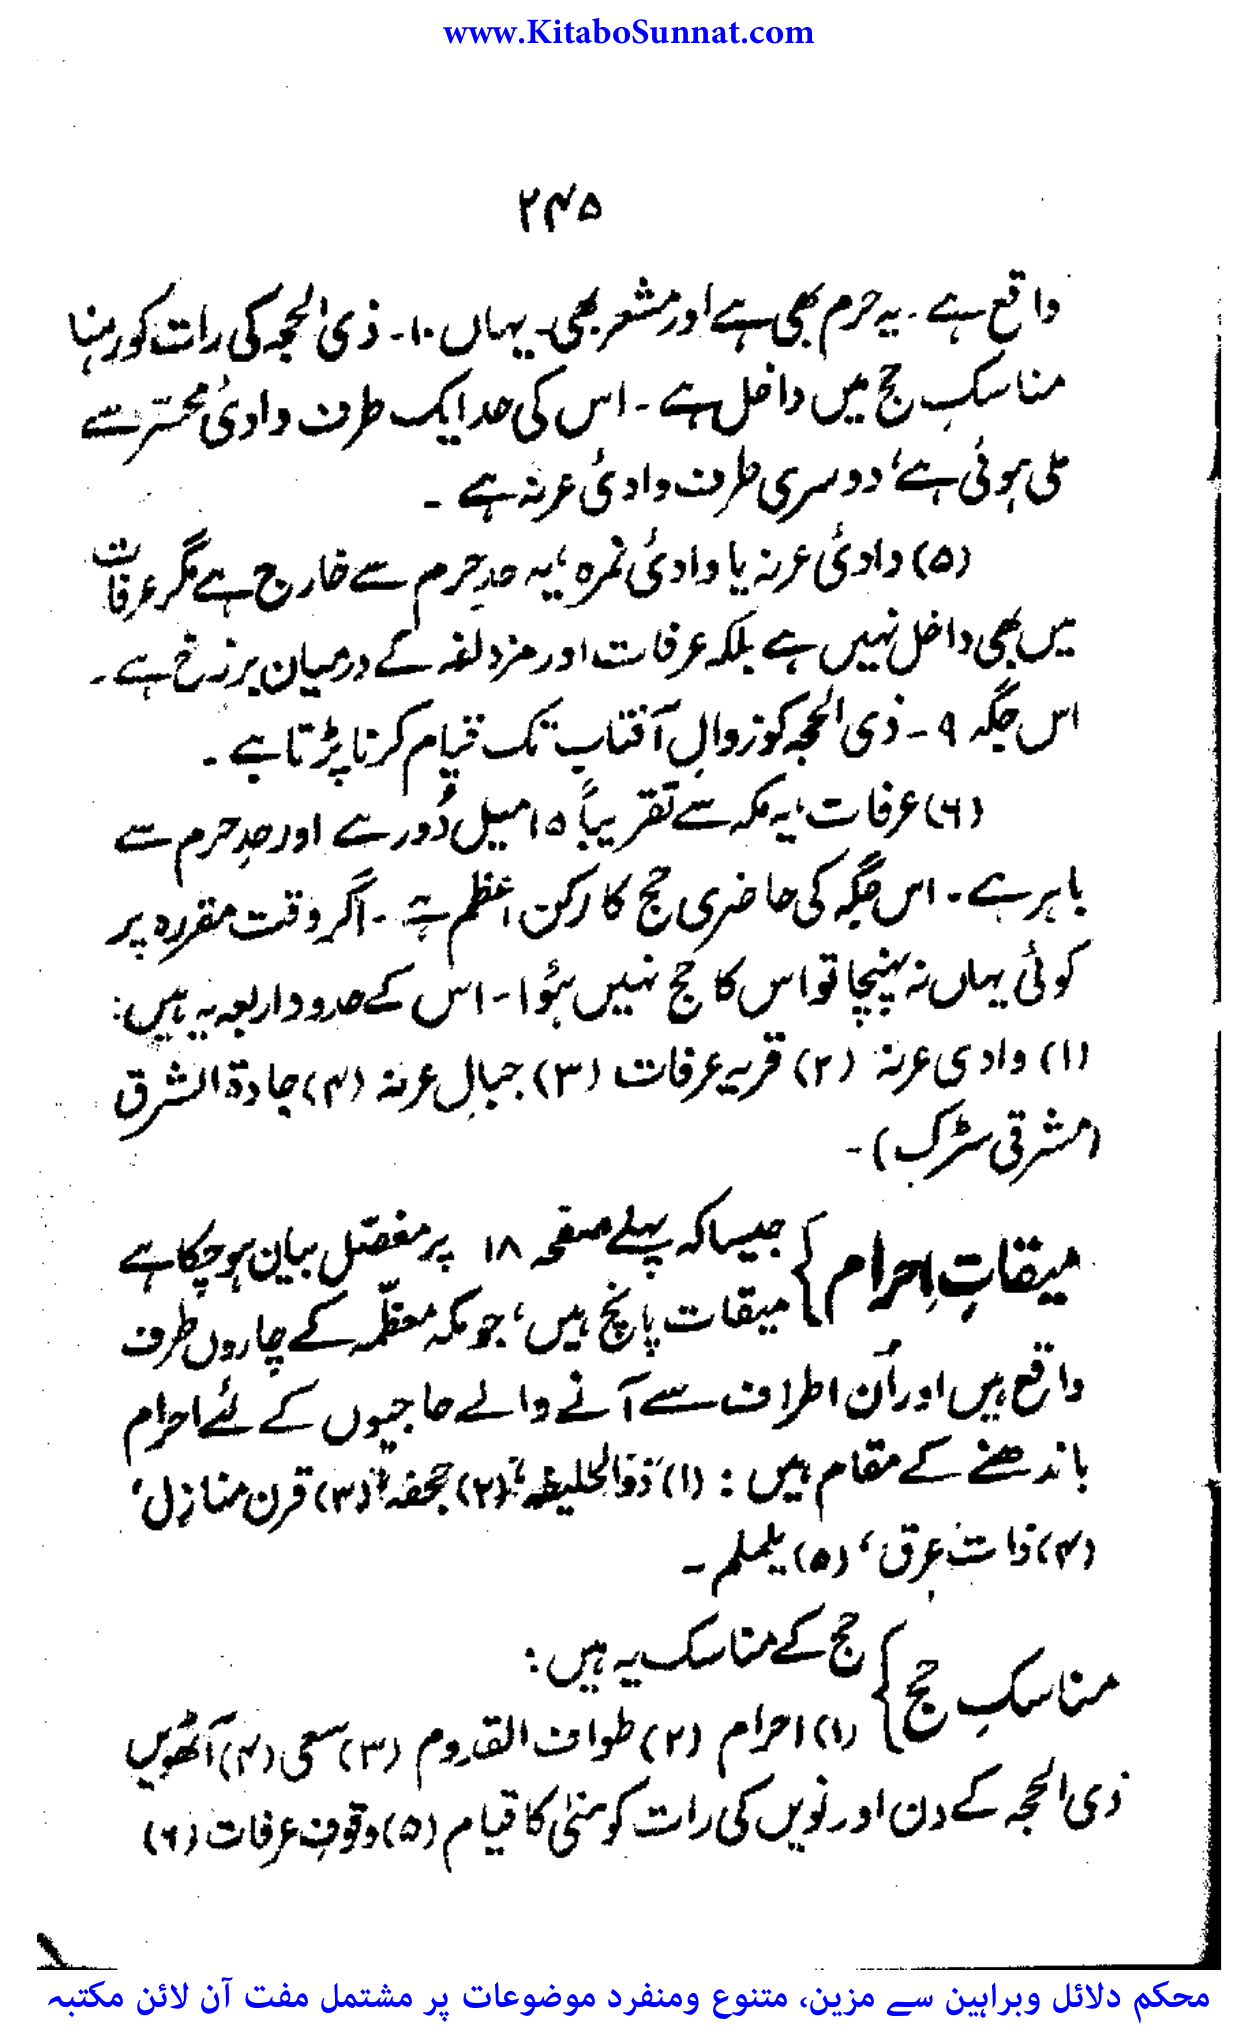 www.KitaboSunnat.com
۲۴۵
واقع ہے۔ یہ حرم بھی ہے اور مشعر بھی۔ یہاں ۱۰۔ ذی الحجہ کی رات کو رہنا
مناسکِ حج میں داخل ہے۔ اس کی حد ایک طرف وادیٔ محسّر سے
ملی ہوئی ہے، دوسری طرف وادیٔ عرنہ ہے۔
(۵) وادیٔ عرنہ یا وادیٔ نمرہ، یہ حدِ حرم سے خارج ہے مگر عرفات
میں بھی داخل نہیں ہے بلکہ عرفات اور مزدلفہ کے درمیان برزخ ہے۔
اس جگہ ۹۔ ذی الحجہ کو زوالِ آفتاب تک قیام کرنا پڑتا ہے۔
(۶) عرفات، یہ مکہ سے تقریباً ۱۵ میل دُور ہے اور حدِ حرم سے
باہر ہے۔ اس جگہ کی حاضری حج کا رکن اعظم ہے۔ اگر وقت مقررہ پر
کوئی یہاں نہ پہنچا تو اس کا حج نہیں ہؤا۔ اس کے حدود اربعہ یہ ہیں:
(۱) وادی عرنہ (۲) قریہ عرفات (۳) جبالِ عرنہ (۴) جادۃ الشرق
(مشرقی سڑک)۔
میقاتِ احرام } جیسا کہ پہلے صفحہ ۱۸ پر مفصّل بیان ہو چکا ہے
میقات پانچ ہیں، جو مکہ معظّمہ کے چاروں طرف
واقع ہیں اور اُن اطراف سے آنے والے حاجیوں کے لئے احرام
باندھنے کے مقام ہیں: (۱) ذوالحلیفہ، (۲) جحفہ، (۳) قرن منازل،
(۴) ذات عرق، (۵) یلملم۔
مناسکِ حج } حج کے مناسک یہ ہیں:
(۱) احرام (۲) طواف القدوم (۳) سعی (۴) آٹھویں
ذی الحجہ کے دن اور نویں کی رات کو منیٰ کا قیام (۵) وقوفِ عرفات (۶)
محکم دلائل وبراہین سے مزین، متنوع ومنفرد موضوعات پر مشتمل مفت آن لائن مکتبہ